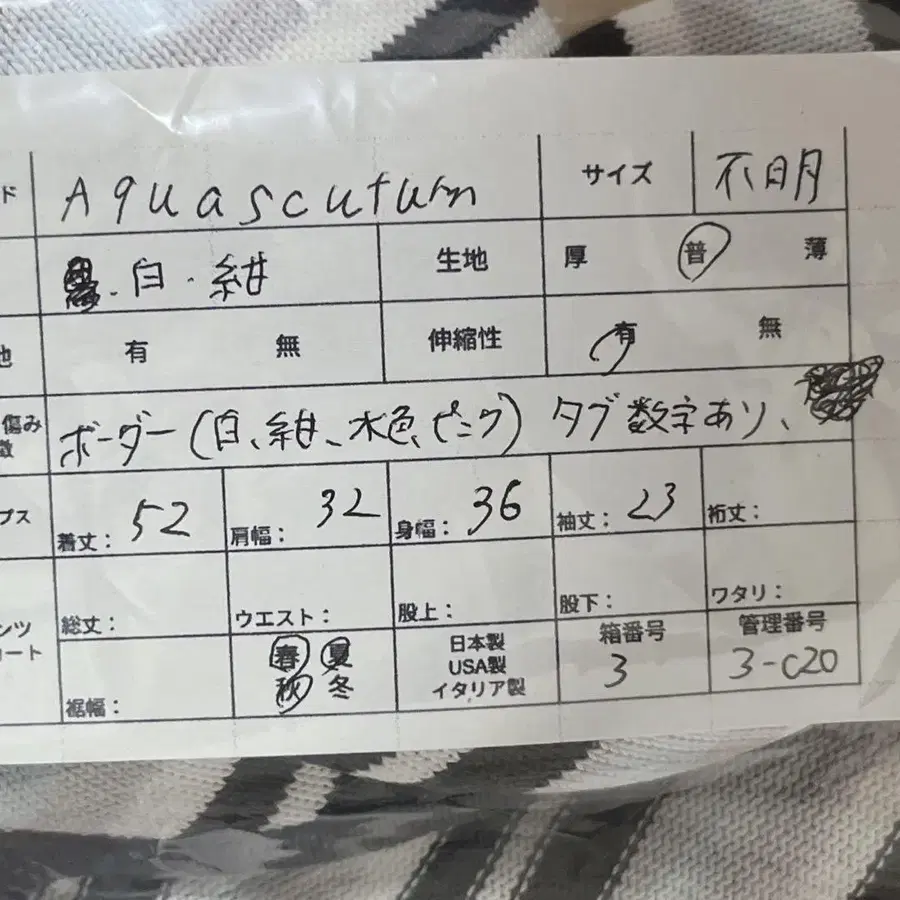 ド Aquascutum サイズ 不明
白・紺 生地 厚 普 薄
地 有 無 伸縮性 有 無
傷み
徴 ボーダー(白、紺、水色、ピンク) タブ数字あり、
プス 着丈: 52 肩幅: 32 身幅: 36 袖丈: 23 裄丈:
ンツ 総丈: ウエスト: 股上: 股下: ワタリ:
ート 裾幅: 春 夏 日本製 箱番号 管理番号
秋 冬 USA製 3 3-C20
イタリア製